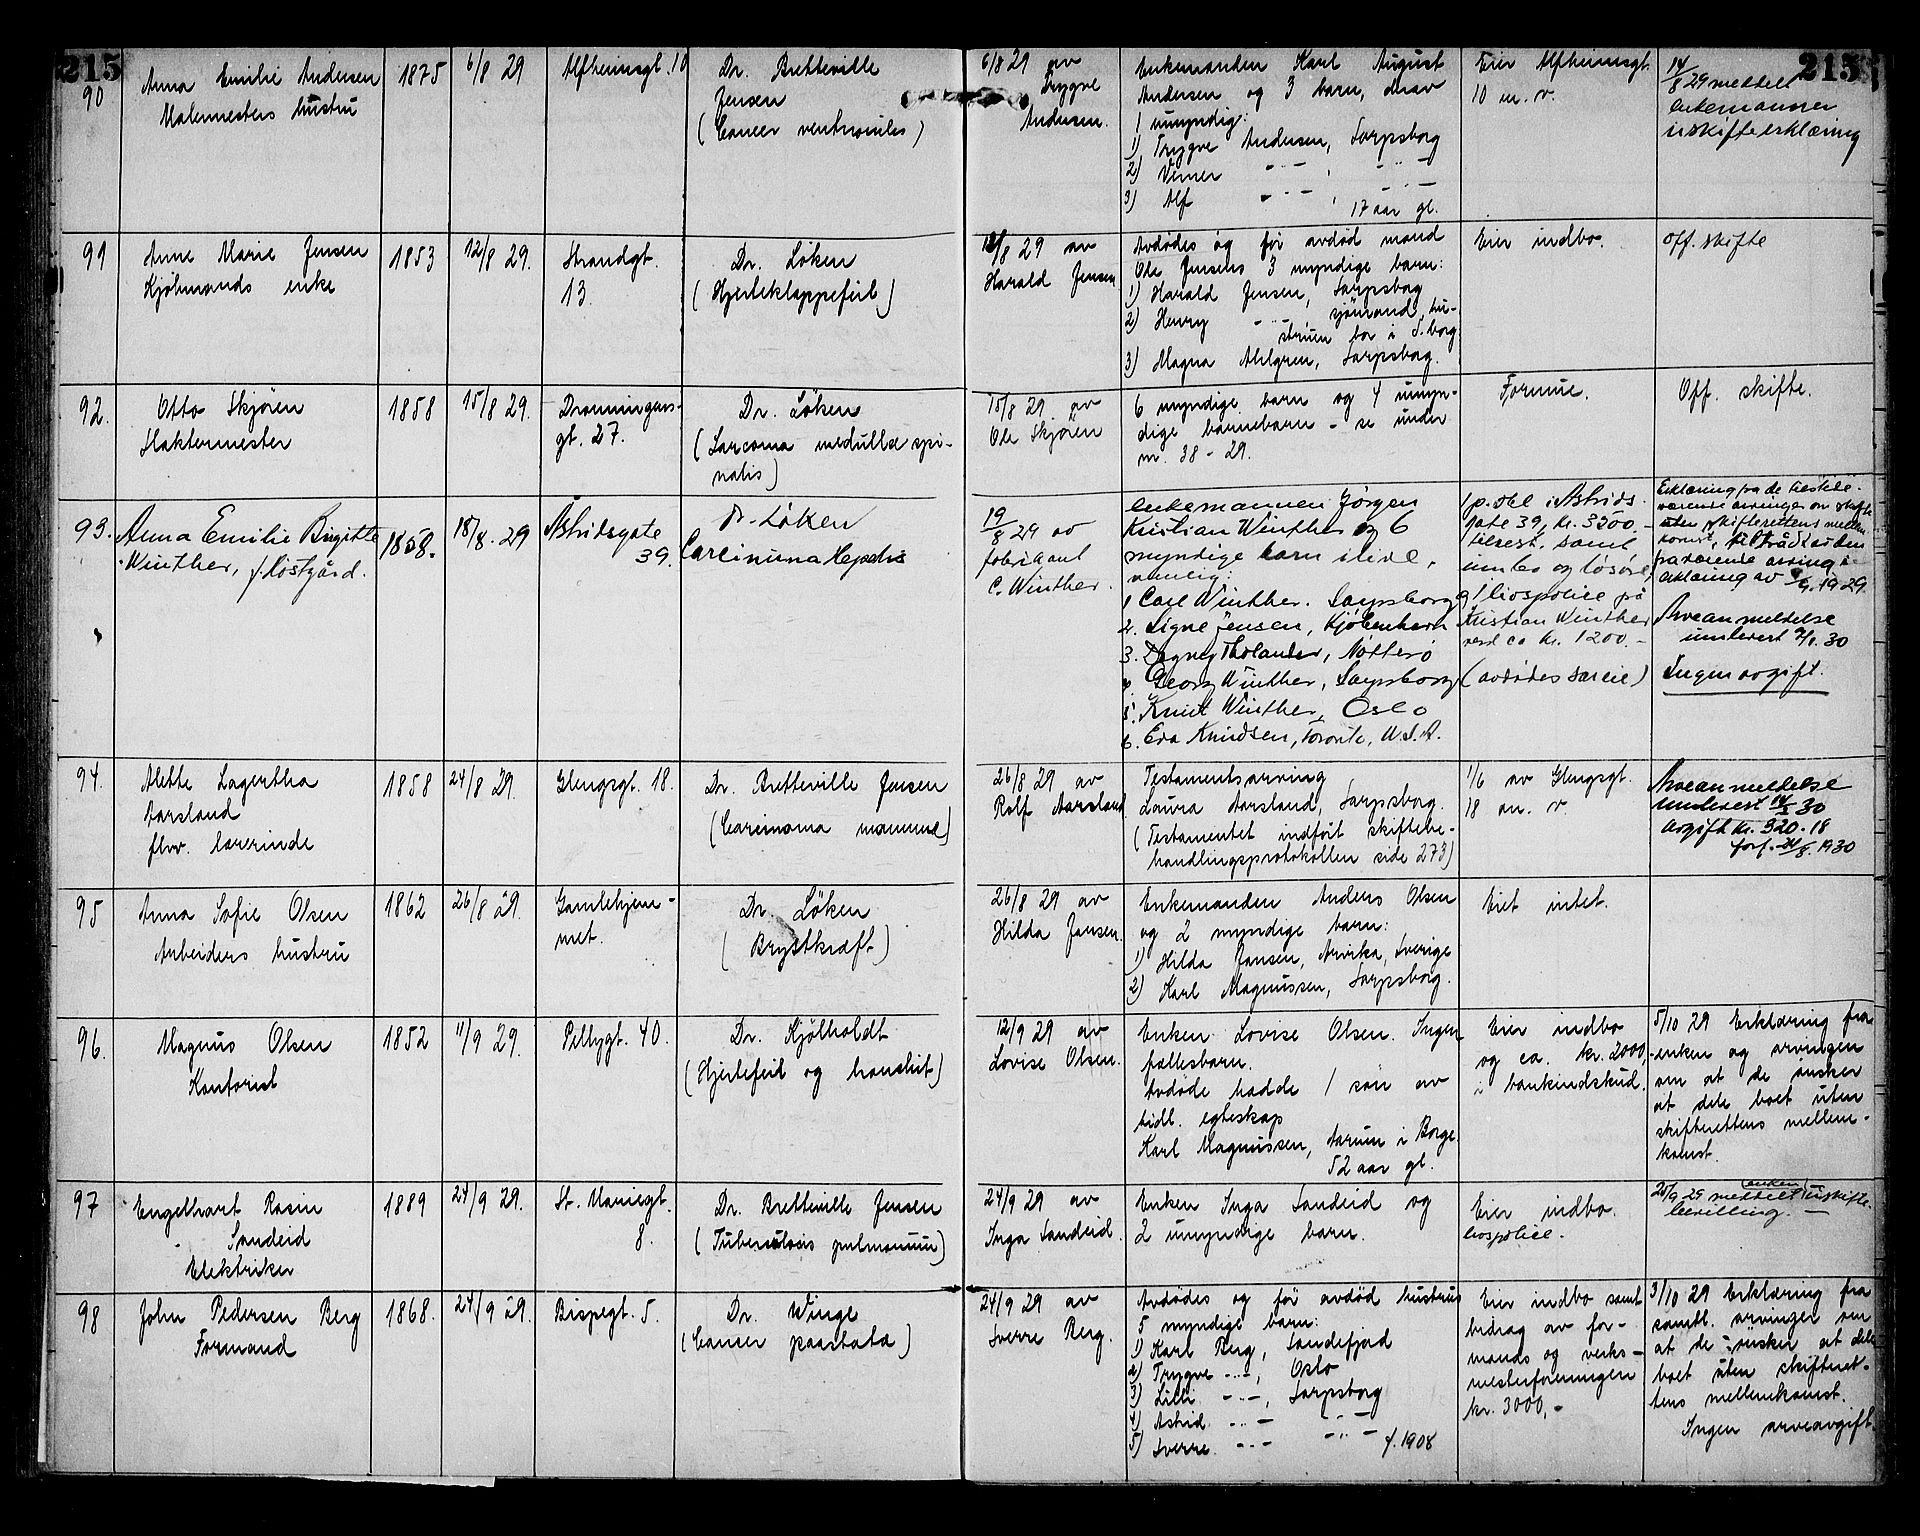 215
215
90
Anna Emilie Andersen
Malermesters hustru
1875
6/8 29
Alfheimsgt. 10
Dr. Bretteville
Jensen
(Cancer ventriculi)
6/8 29 av
Trygve
Andersen.
Enkemanden Karl August
Andersen og 3 barn, derav
1 umyndig:
1) Trygve Andersen, Sarpsborg
2) Verner - " - , - " -
3) Alf - " - , - " -
17 aar gl.
Eier Alfheimsgt.
10 m. v.
14/8 29 meddelt
enkemannen
uskifteerklæring
91
Anne Marie Jensen
Kjøbmands enke
1853
12/8 29.
Strandgt.
13.
Dr. Löken
(Hjerteklappefeil)
12/8 29 av
Harald Jensen
Avdødes og før avdød mand
Ole Jensens 3 myndige barn:
1) Harald Jensen, Sarpsborg
2) Henry - " - , sjömand, hu-
struen bor i S.borg
3) Magna Ahlgren, Sarpsborg.
Eier indbo.
Off. skifte
92.
Otto Skjören
Slaktermester
1858
15/8 29.
Dronningens-
gt. 27.
Dr. Löken
(Sarcoma medulla spi-
nalis)
15/8 29 av
Ole Skjören
6 myndige barn og 4 umyn-
dige barnebarn - se under
nr. 38 - 29.
Formue.
Off. skifte.
93.
Anna Emilie Birgitte
Winther, f. Höstgård.
1858.
18/8. 29
Astridsgate
39.
Dr. Löken
Carcinuma Hepatis
19/8 29 av
fabrikant
C. Winther.
enkemannen Jörgen
Kristian Winther og 6
myndige barn ilive,
nemlig:
1 Carl Winther. Sarpsborg
2. Signe Jensen, Kjöbenhavn
3. Dagny Tholander, Nötterö
4. Georg Winther, Sarpsborg
5. Knut Winther, Oslo
6. Eva Knudsen, Toronto, U.S.A.
1 p. obl. i Astrids-
gate 39, kr. 3500.-
tilrest, samt
innbo og lösöre,
og 1 livspolice på
Kristian Winther
verd ca kr. 1200.-
(avdödes særeie)
Erklæring fra de tilstede-
værende arvinger om skifte
uten skifterettens mellem-
komst,
fraværende arving i
erklæring av /9. 1929
Arveanmeldelse
innlevert 2/1. 30
Ingen avgift.
94.
Alette Lagertha
Aarsland
fhv. lærerinde
1858
24/8 29.
Glengsgt. 18.
Dr. Bretteville Jensen
(Carcinoma mammae)
26/8 29 av
Rolf Aarsland
Testamentsarving
Laura Aarsland, Sarpsborg.
(Testamentet indført skiftebe-
handlingsprotokollen side 273)
1/6 av Glengsgt.
18 m. v.
Arveanmeldelse
innlevert 14/2 30
Avgift kr. 320.18
forf. 24/8. 1930
95
Anna Sofie Olsen
Arbeiders hustru
1862
26/8 29.
Gamlehjem-
met.
Dr. Löken
(Brystkræft)
26/8 29 av
Hilda Jansen.
Enkemanden Anders Olsen
og 2 myndige barn:
1) Hilda Jansen, Arvika, Sverige
2) Karl Magnussen, Sarpsborg.
Eiet intet.
96.
Magnus Olsen
Kontorist
1852
11/9 29.
Pellygt. 40.
Dr. Kjölholdt
(Hjertefeil og bronchit)
12/9 29 av
Lovise Olsen.
Enken Lovise Olsen. Ingen
fællesbarn.
Avdøde hadde 1 sön av
tidl. egteskap
Karl Magnussen, Aarum i Borge
52 aar gl.
Eier indbo
og ca. kr. 2000,-
i bankindskud.
5/10 29 Erklæring fra
enken og arvingen
om at de önsker
at dele boet uten
skifterettens mellem-
komst.
97
Engelhart Rasin
Sandeid
Elektriker
1889
24/9 29.
St. Mariegt.
8.
Dr. Bretteville Jensen
(Tuberculosis pulmonum)
24/9 29 av
Inga Sandeid.
Enken Inga Sandeid og
2 umyndige barn.
Eier indbo.
livspolice.
25/9 29 meddelt enken uskifte-
bevilling. -
98
John Pedersen Berg
Formand
1868.
24/9 29.
Bispegt. 5.
Dr. Winge
(Cancer prostata)
24/9 29 av
Sverre Berg.
Avdödes og för avdöd hustrus
5 myndige barn:
1) Karl Berg, Sandefjord
2) Trygve - " - , Oslo
3) Lilli - " - , Sarpsborg
4) Astrid - " - - " -
5) Sverre - " - - " - f. 1908
Eier indbo samt
bidrag av for-
mands og verks-
mesterforeningen
kr. 3000,-
3/10 29 Erklæring fra
samtl. arvinger om
at de önsker at dele
boet uten skifteret-
tens mellemkomst.
Ingen arveavgift.